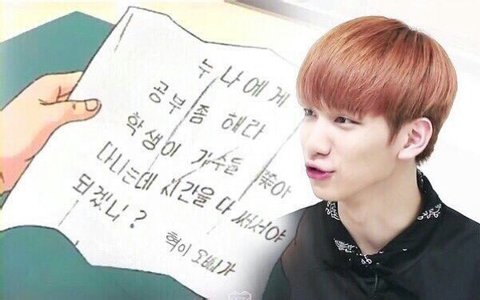 누나에게
공부 좀 해라
학생이 가수들 쫓아
다니는데 시간을 다 써서야
되겠니?
혁이 오빠가